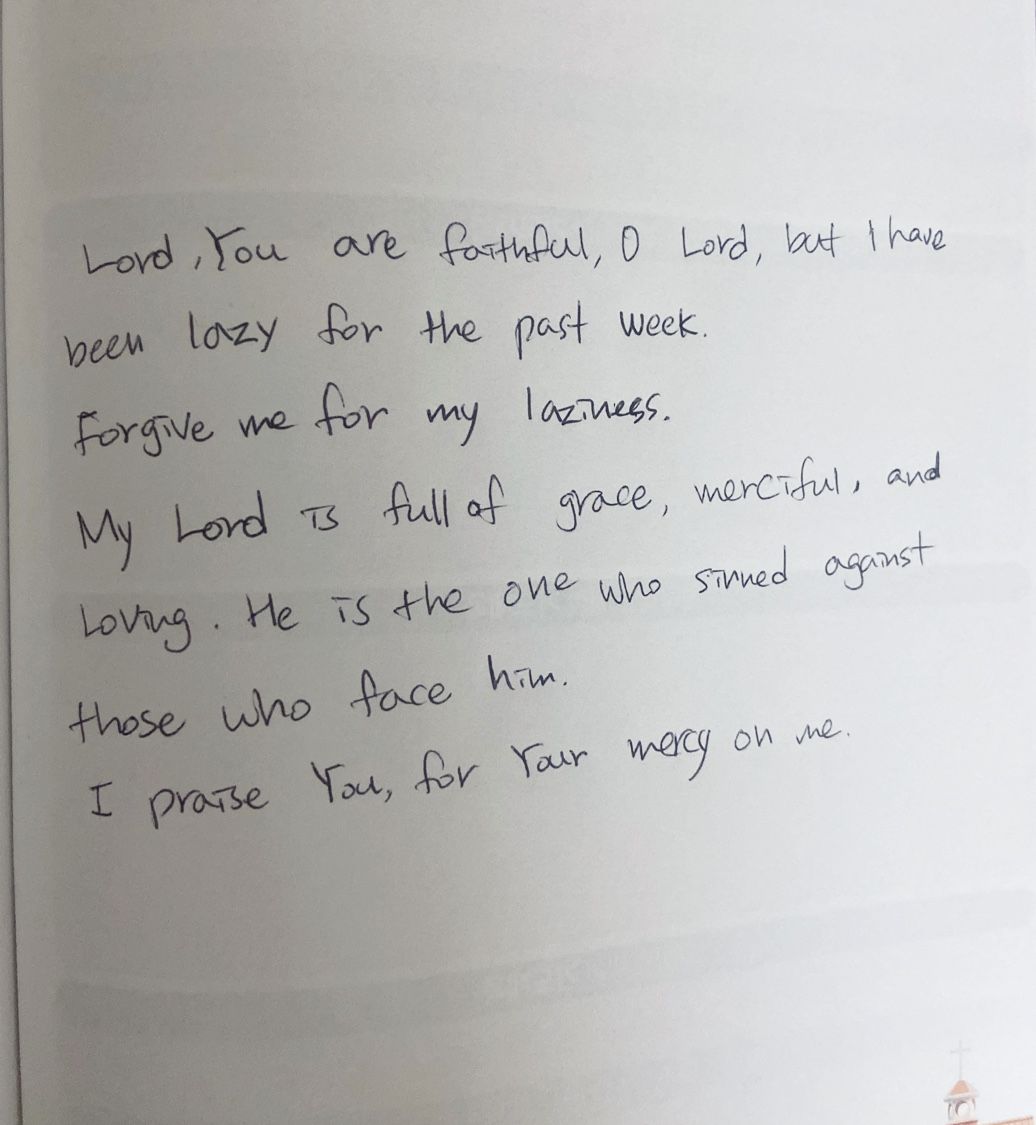 Lord, You are faithful, O Lord, but I have
been lazy for the past week.
Forgive me for my laziness.
My Lord is full of grace, merciful, and
Loving. He is the one who sinned against
those who face him.
I praise You, for Your mercy on me.